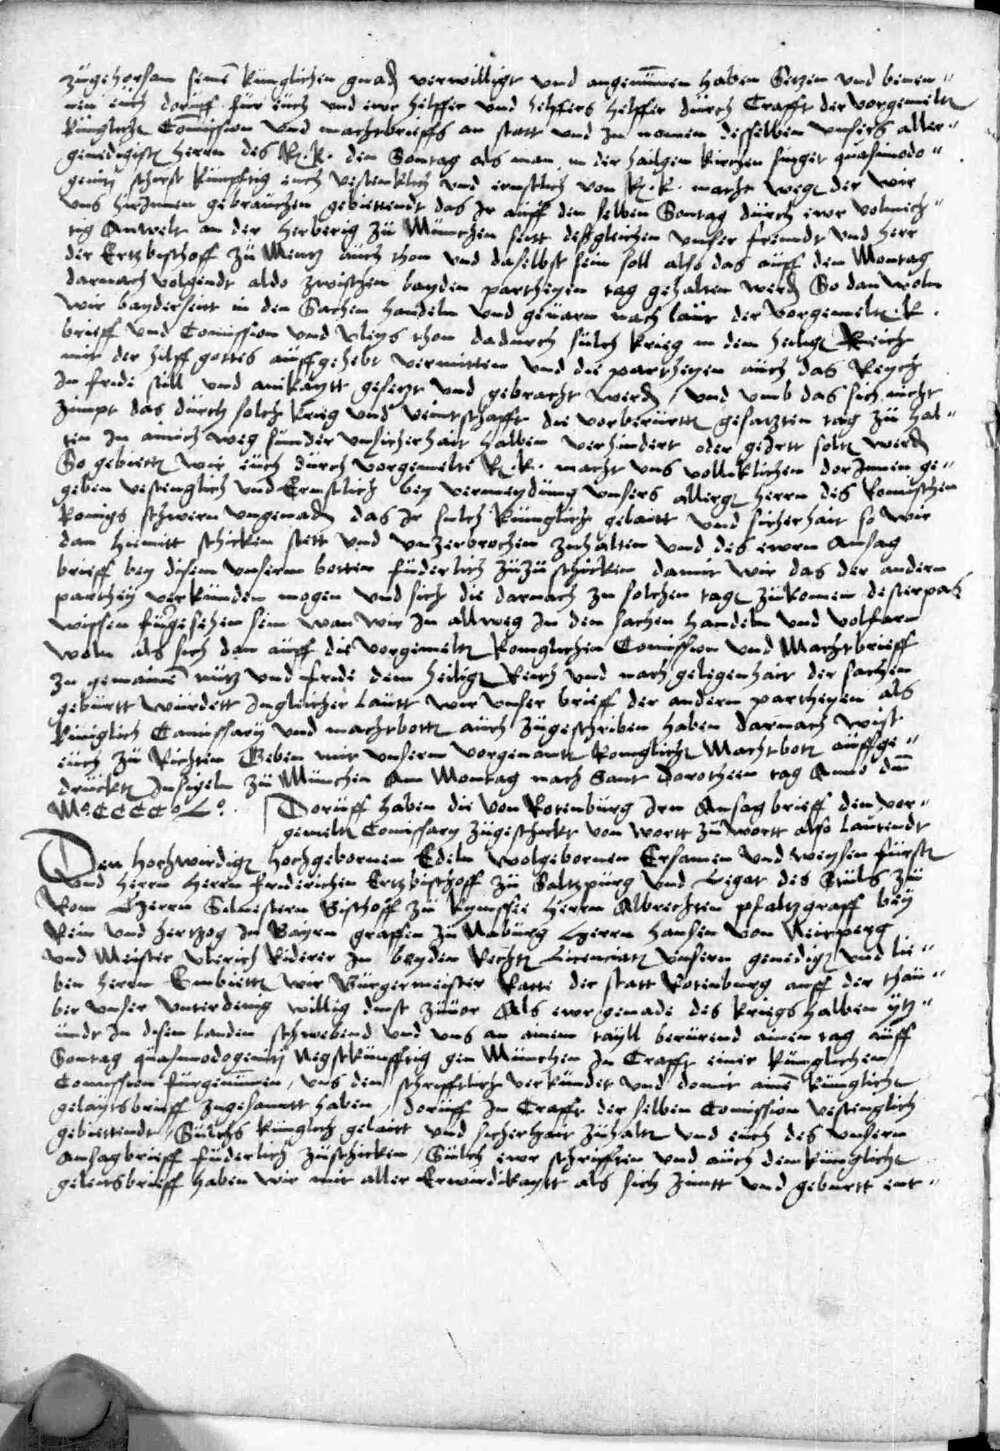 zugehorsam seine kunglichen gnad verwilligt und angenumen haben Setzen und benen-
nen euch doruff fur euch und ewr helffer und helffers helffer durch Crafft der vorgemelte
kunglich Comission und machtbrieffs an statt und In namen desselben unsers aller-
genedigiste herrn des R. K. den Sontag als man in der hailgen kirchen singet quasimodo-
geniti schirst kunfftig euch vestenklich und ernstlich von R. K. macht wege der wir
uns hirInnen gebrauchen gebiettendt das Ir auff den selben Sontag durch ewr volmech-
tig Anwelt an der herberig zu Munchen seitt desgleichen unser freundt und herr
der Ertzbischoff zu Mentz auch thon und daselbst sein soll also das auff den Montag
darnach volgendt aldo zwischen bayden partheyen tag gehalten werd So dan woln
wir bayderseitt in den Sachen handeln und gevarn nach laut der vorgemelte K.
brieff und Comission und vleys thon dadurch sulch krieg in dem heilige Reich
mit der hilff gottes auffgehebt vermitten und die partheyen auch das Reych
In fride still und ainikaytt gesetzt und gebracht werd / und umb das sich nicht
zimpt das durch solch krieg und veintschafft die vorberurtt gesatzten tag zu hal-
ten In ainich weg sunder unsicherhait halben verhindert oder geIrtt solt werd
So gebiett wir euch durch vorgemelte R. K. macht uns volliklichen dorInnen ge-
geben vestenglich und Ernstlich bey vermeydung unsers allerg herrn des Romischen
konigs schwern ungenad das Ir sulch kunglich gelaitt und sicherhait so wir
dan hiemitt schicken stett und unzerbrochen zuhalten und des ewrn Ansag
brieff bey disem unserm botten furderlich zuzuschicken damit wir das der andern
parthey verkunden mogen und sich die darnach zu solchen tage zukomen desterpas
wissen furgesehen sein wan wir In allweg In den sachen handeln und volfarn
woln als sich dan auff die vorgemelte konglichen Comission und Machtbrieff
zu gemaine nutz und fride dem heilige Reich und nach gelegenhait der sachen
geburtt wurdett Ingleicher lautt wir unser brieff der andern partheyen als
kuniglich Comissary und machtbott auch zugeschriben haben darnach wist
euch zu Richten Geben mit unserm vorgenante konglich Machtbott auffge-
druckte Insigeln zu Munchen Am Montag nach Sant Dorotheen tag Anno dm
Mo. CCCCo Lo. Doruff haben die von Rotenburg Irn Ansagbrieff den vor-
gemelte Comissary zugeschickt von wortt zu wortt also lautendt
Den hochwirdige hochgebornen Edeln wolgebornen Ersamen und weysen furste
und herrn herrn friderichen Ertzbischoff zu Saltzpurg und Legat des Stuls zu
Rom Herrn Silvestern Bischoff zu kymssee Herrn Albrechten pfaltzgraff bey
Rein und hertzog In Bayrn graffen zu Naburg Herrn Hansen von Neitperg
und Meister Ulerich Riderer In bayden Rechte Licenciate unsern genedige und lie-
ben herrn Embiette wir Burgermeister Ratte der statt Rotenburg auff der thau-
ber unser unterdenig willig dinst zuvor Als ewr genade des kriegs halben ytz-
undt In disen Landen schwebend und uns an ainem tayll berurend ainen tag auff
Sontag quasimodogeniti Negstkunfftig gen Munchen In Crafft einer kunglichen
Comission furgenumen / uns den schrifftlich verkundet und domit aine kunglich
gelaytsbrieff zugesantt haben / doruff In Crafft der selben Comission vestenglich
gebiettendt / Sulchs kunglich gelaitt und sicherhait zuhalte und euch des unsern
Ansagbrieff furderlich zuschicken / Sulch ewr schrifften und auch den kunglich
geleitsbrieff haben wir mit aller Erwirdikaytt als sich zimtt und geburtt ent-